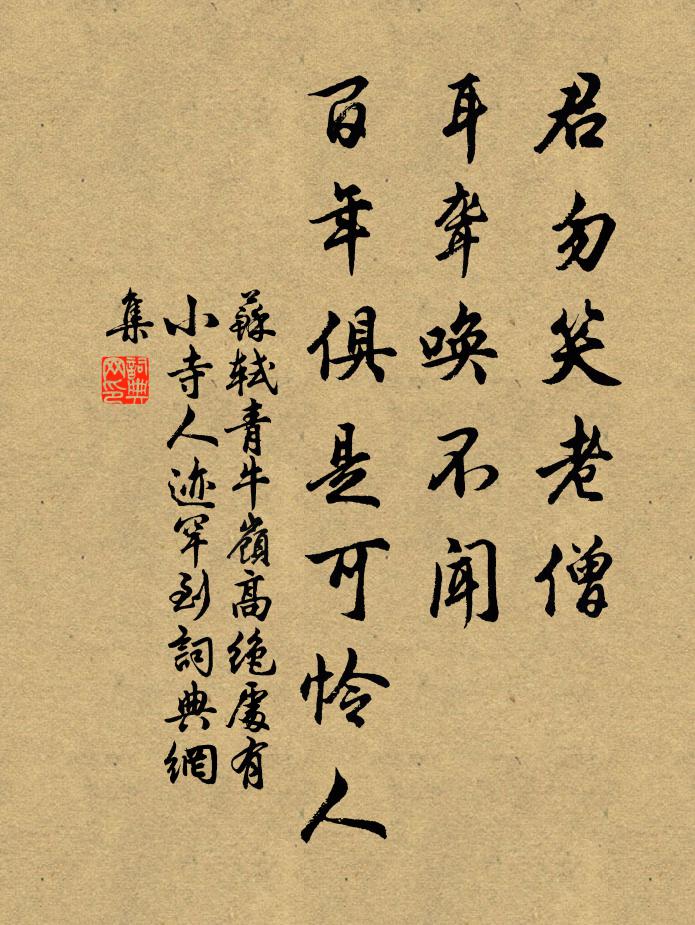 君勿笑老僧
耳聾唤不闻
百年俱是可怜人
蘇軾青牛嶺高絶處有
小寺人迹罕到詞典網
集
詞典
网印